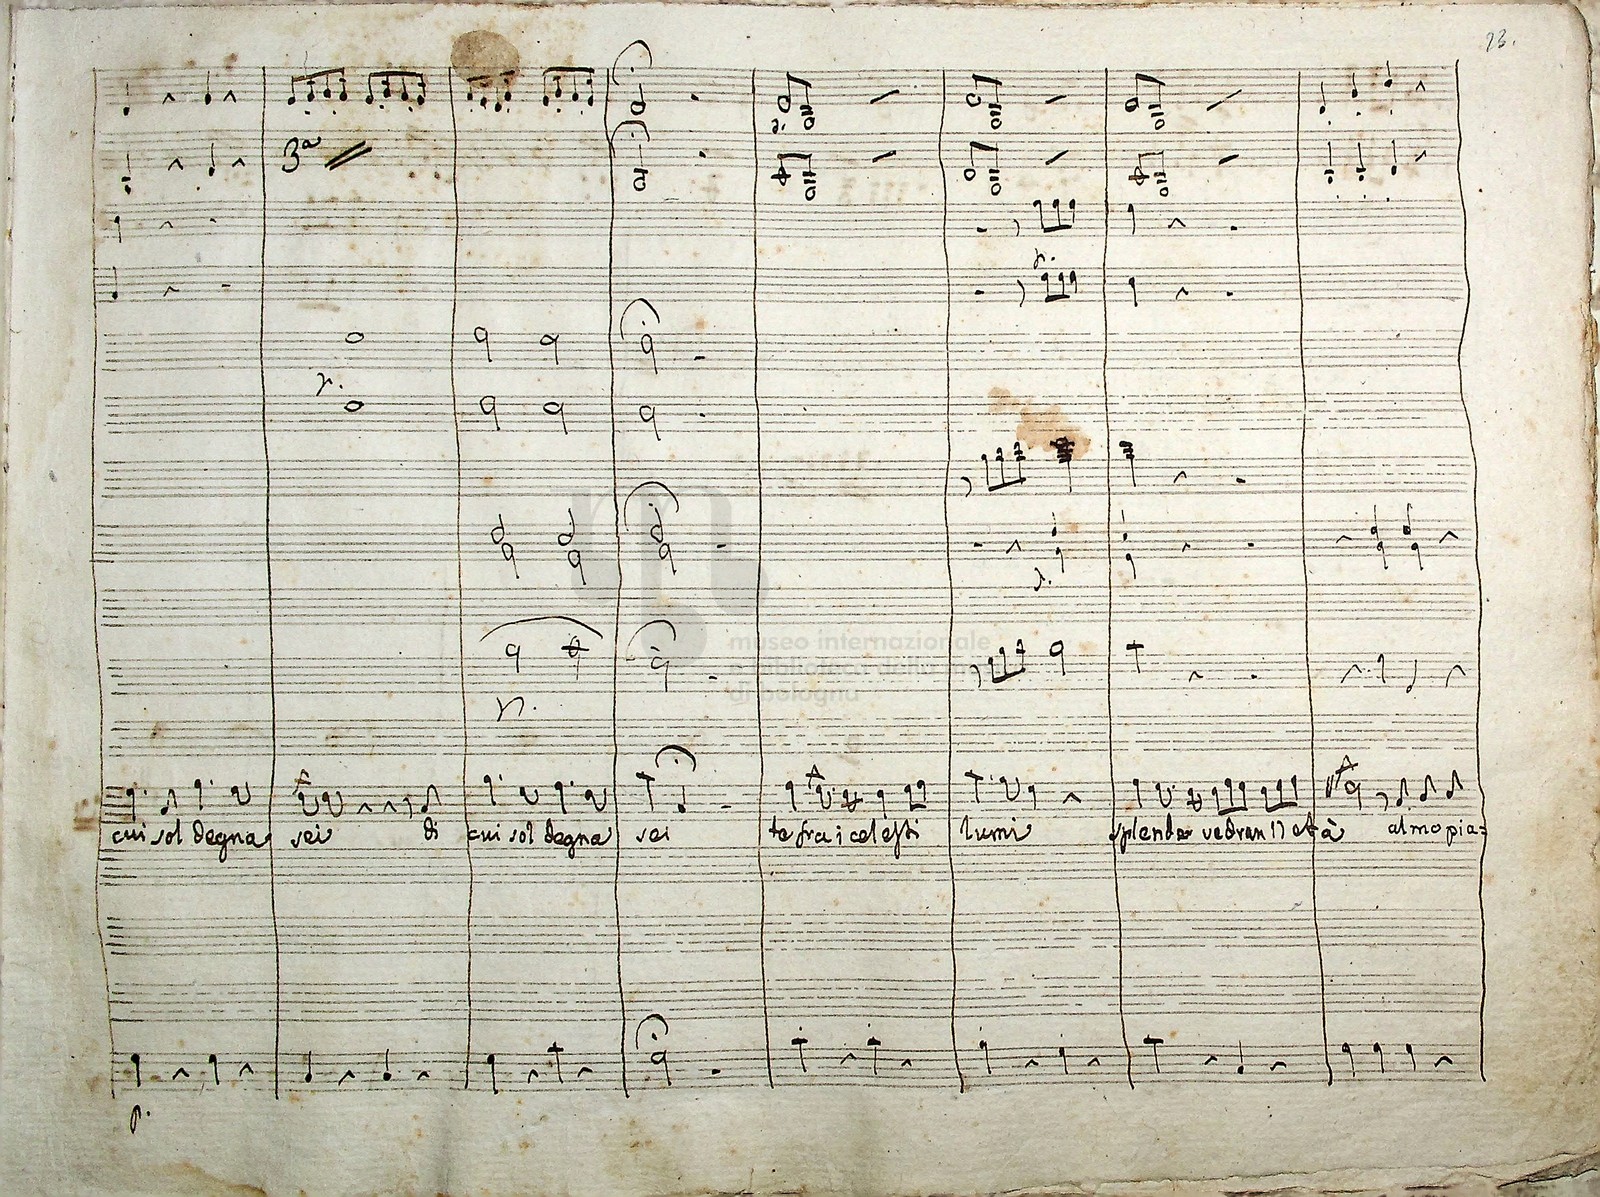 23.
3ª
p.
p.
p.
p.
museo internazionale
e biblioteca della musica
di bologna
cui sol degna sei di cui sol degna sei te fra i celesti lumi splender vedran l'età almo pia=
p.